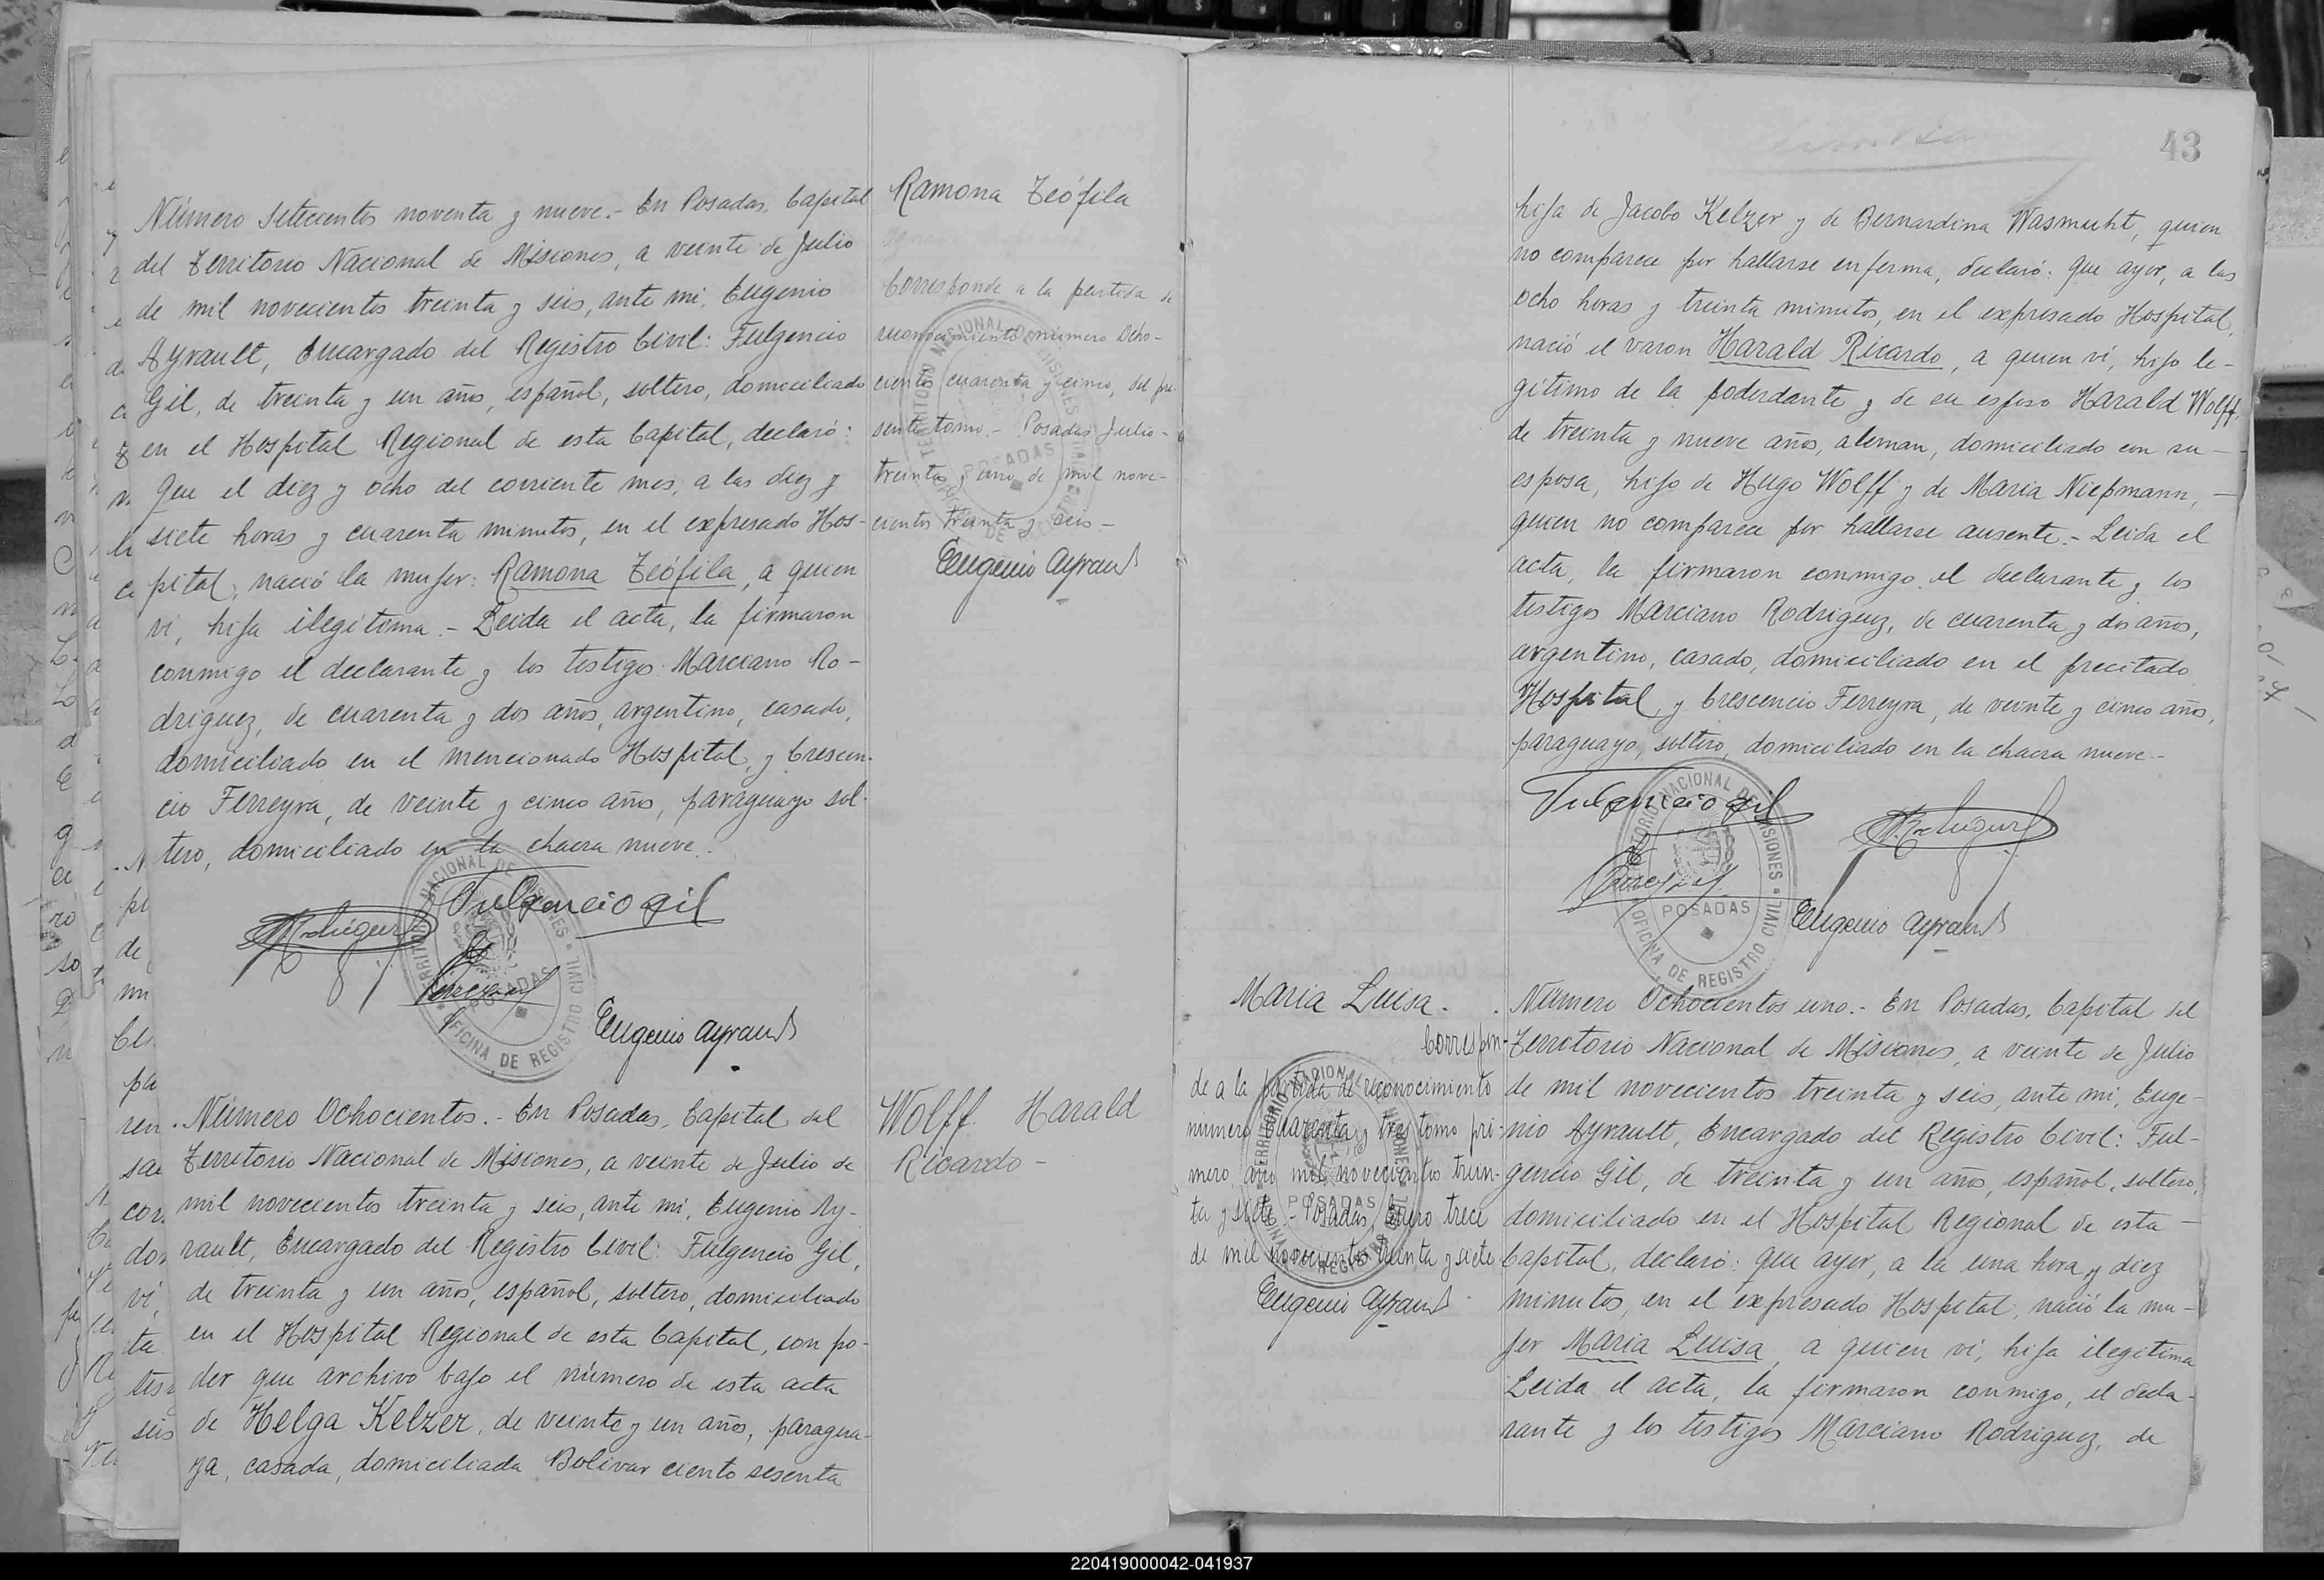 Ramona Teófila
Número Setecientos noventa y nueve.- En Posadas, Capital
del Territorio Nacional de Misiones, a veinte de Julio
de mil novecientos treinta y seis, ante mi, Eugenio
Ayrault, Encargado del Registro Civil: Fulgencio
Gil, de treinta y un años, español, soltero, domiciliado
en el Hospital Regional de esta Capital, declaró:
Que el diez y ocho del corriente mes, a las diez y
siete horas y cuarenta minutos, en el expresado Hos-
pital, nació la mujer: Ramona Teófila, a quien
vi, hija ilegitima.- Leida el acta, la firmaron
conmigo el declarante y los testigos Marciano Ro-
driguez, de cuarenta y dos años, argentino, casado,
domiciliado en el mencionado Hospital, y Crescen-
cio Ferreyra, de veinte y cinco años, paraguayo sol-
tero, domiciliado en la chacra nueve.
Corresponde a la partida de
reconocimiento número Ocho-
cientos cuarenta y cinco, del pre-
sente tomo.- Posadas Julio-
treinta y uno de mil nove-
cientos treinta y seis-
Eugenio Ayrault
Fulgencio Gil
Ferreyra
Eugenio Ayrault
TERRITORIO NACIONAL DE MISIONES
POSADAS
OFICINA DE REGISTRO CIVIL
Wolff Harald
Ricardo-
Número Ochocientos.- En Posadas, Capital del
Territorio Nacional de Misiones, a veinte de Julio de
mil novecientos treinta y seis, ante mi, Eugenio Ay-
rault, Encargado del Registro Civil: Fulgencio Gil,
de treinta y un años, español, soltero, domiciliado
en el Hospital Regional de esta Capital, con po-
der que archivo bajo el número de esta acta
de Helga Kelzer, de veinte y un años, paragua-
ya, casada, domiciliada Bolivar ciento sesenta
43
hija de Jacobo Kelzer y de Bernardina Wasmuht, quien
no comparece por hallarse enferma, declaró: Que ayer, a las
ocho horas y treinta minutos, en el expresado Hospital,
nació el varon Harald Ricardo, a quien vi, hijo le-
gitimo de la poderdante y de su esposo Harald Wolff,
de treinta y nueve años, aleman, domiciliado con su-
esposa, hijo de Hugo Wolff y de Maria Niepmann,-
quien no comparece por hallarse ausente.- Leida el
acta, la firmaron conmigo el declarante y los
testigos Marciano Rodriguez, de cuarenta y dos años,
argentino, casado, domiciliado en el precitado
Hospital y Crescencio Ferreyra, de veinte y cinco años,
paraguayo, soltero, domiciliado en la chacra nueve.-
Fulgencio Gil
Ferreyra
Eugenio Ayrault
TERRITORIO NACIONAL DE MISIONES
POSADAS
OFICINA DE REGISTRO CIVIL
Maria Luisa.
Correspon-
de a la partida de reconocimiento
número cuarenta y tres tomo pri-
mero, año mil novecientos trein-
ta y siete.- Posadas, Enero trece
de mil novecientos treinta y siete
Eugenio Ayrault
Número Ochocientos uno.- En Posadas, Capital del
Territorio Nacional de Misiones, a veinte de Julio
de mil novecientos treinta y seis, ante mi, Euge-
nio Ayrault, Encargado del Registro Civil: Ful-
gencio Gil, de treinta y un años, español, soltero,
domiciliado en el Hospital Regional de esta-
Capital, declaró: que ayer, a la una hora y diez
minutos, en el expresado Hospital, nació la mu-
jer Maria Luisa, a quien vi, hija ilegitima
Leida el acta, la firmaron conmigo, el decla-
rante y los testigos Marciano Rodriguez, de
220419000042-041937